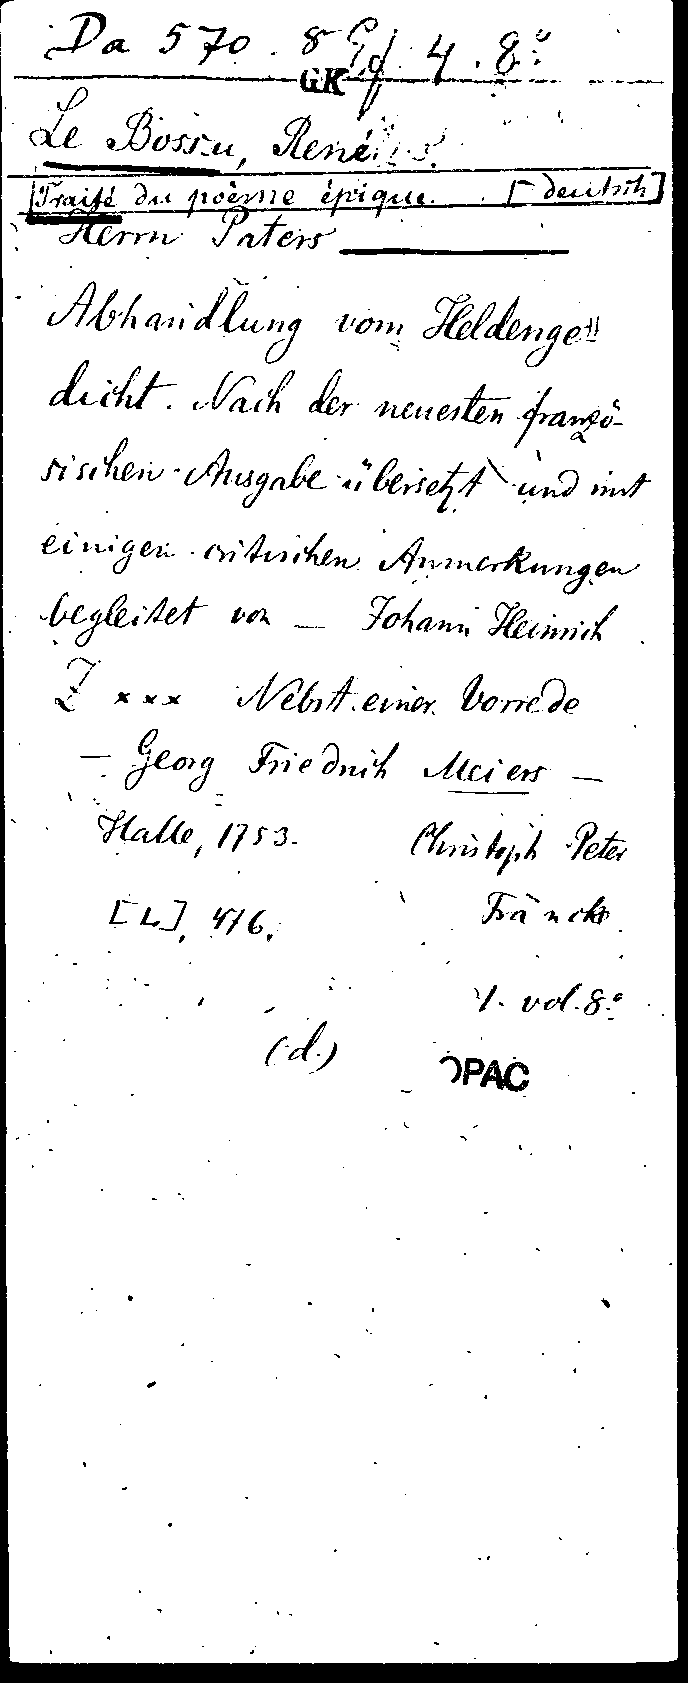 Da 570. 8° 4. 8°
GK
Le Bossu, René
[Traité du poème épique. [deutsch]
Herrn Paters ———
Abhandlung vom Heldenge=
dicht. Nach der neuesten franzö-
sischen Ausgabe übersetzt und mit
einigen critischen Anmerkungen
begleitet von — Johann Heinrich
Z xxx Nebst einer Vorrede
— Georg Friedrich Meiers —
Halle, 1753. Christoph Peter
[L], 416. Franck
1. vol. 8°
(d.) OPAC